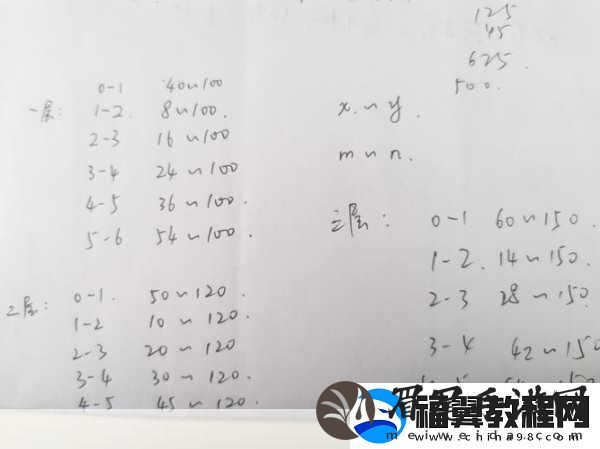 125
45
625
500.
一层: 0-1 40~100
1-2. 8~100.
2-3 16~100
3-4 24~100
4-5 36~100.
5-6 54~100.
x~y.
m~n.
二层: 0-1. 50~120.
1-2 10~120.
2-3 20~120
3-4 30~120.
4-5 45~120.
三层: 0-1 60~150.
1-2. 14~150.
2-3 28~150
3-4 42~150
福翼教程网
www.china98.com